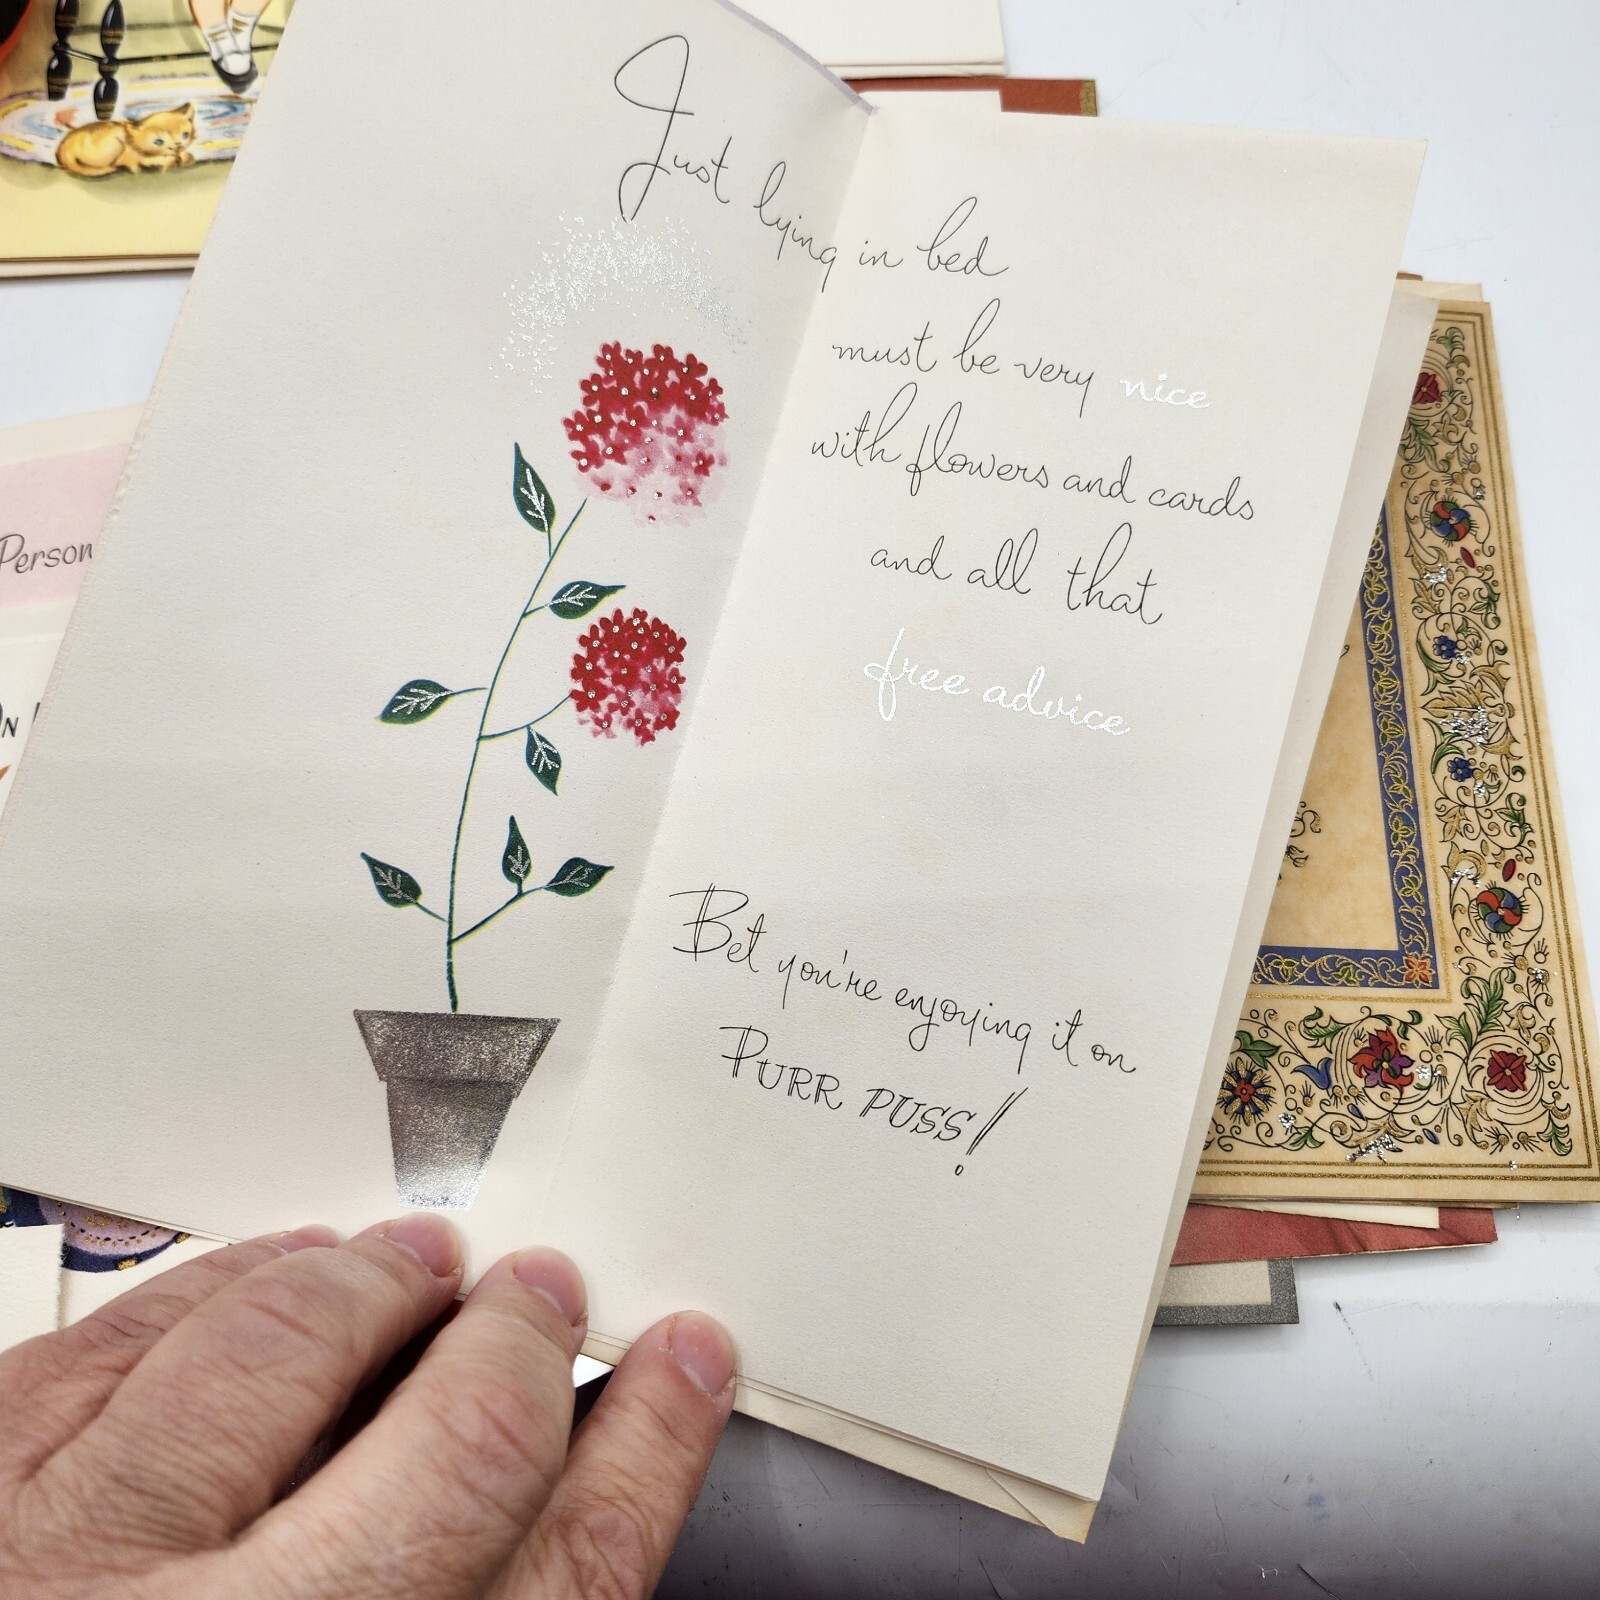 Just lying in bed
must be very nice
with flowers and cards
and all that
free advice
Bet you're enjoying it on
PURR PUSS!
Person